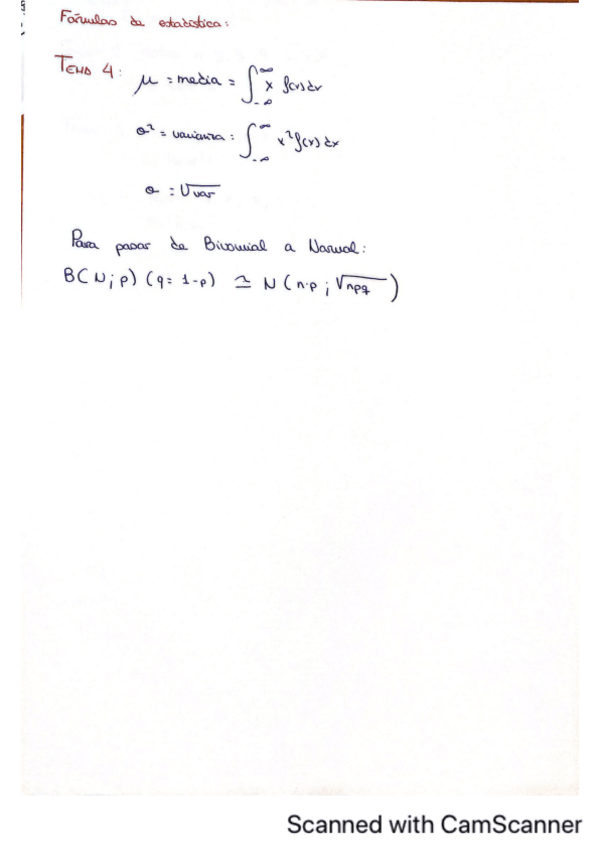 Fórmulas de estadística:
Tema 4: μ = media = ∫_{-∞}^{∞} x f(x) dx
σ² = varianza = ∫_{-∞}^{∞} x² f(x) dx
σ = √var
Para pasar de Binomial a Normal:
B(N; p) (q = 1-p) ≃ N(n·p ; √npq)
Scanned with CamScanner